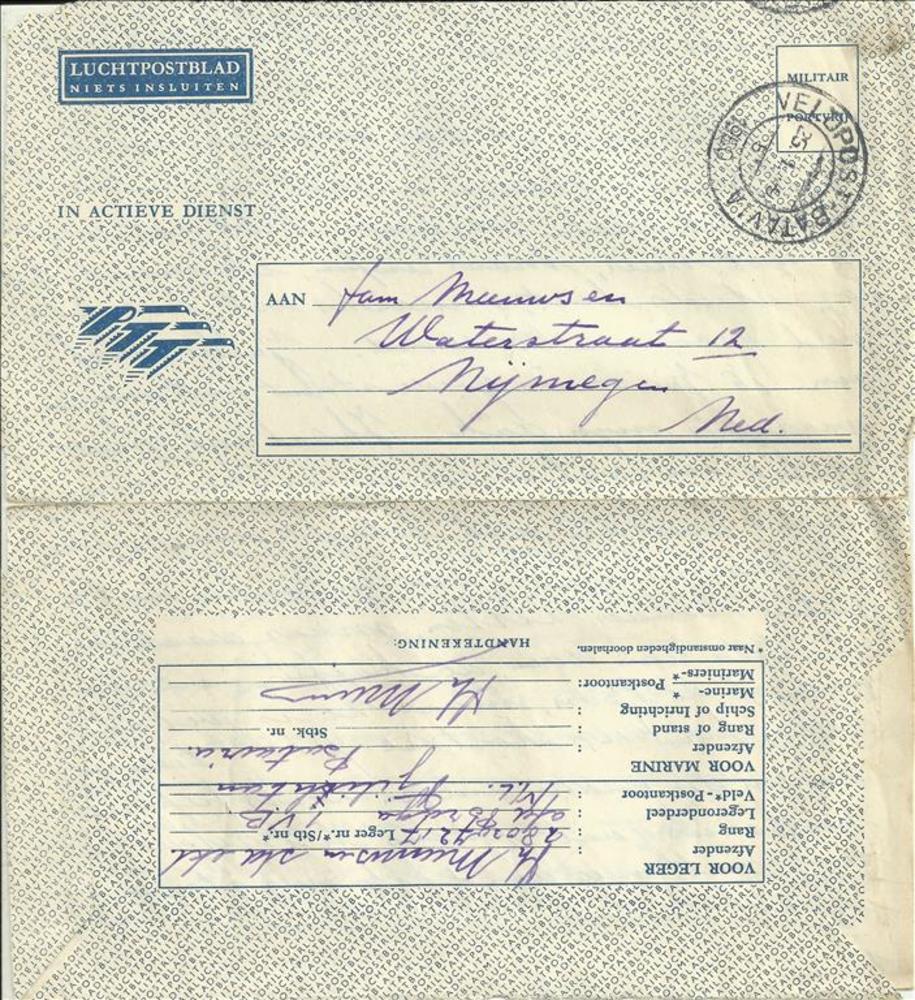 LUCHTPOSTBLAD
NIETS INSLUITEN
MILITAIR
PORTVRIJ
VELDPOST-BATAVIA
IN ACTIEVE DIENST
PTT
AAN Fam Meeuwsen
Waterstraat 12
Nijmegen
Ned.
VOOR LEGER
Afzender :
Rang : Leger nr.*/Stb nr.*
Legeronderdeel :
Veld*-Postkantoor :
VOOR MARINE
Afzender : Batavia
Rang of stand : Stbk. nr.
Schip of Inrichting :
Marine- *
Mariniers-* Postkantoor:
* Naar omstandigheden doorhalen. HANDTEKENING: